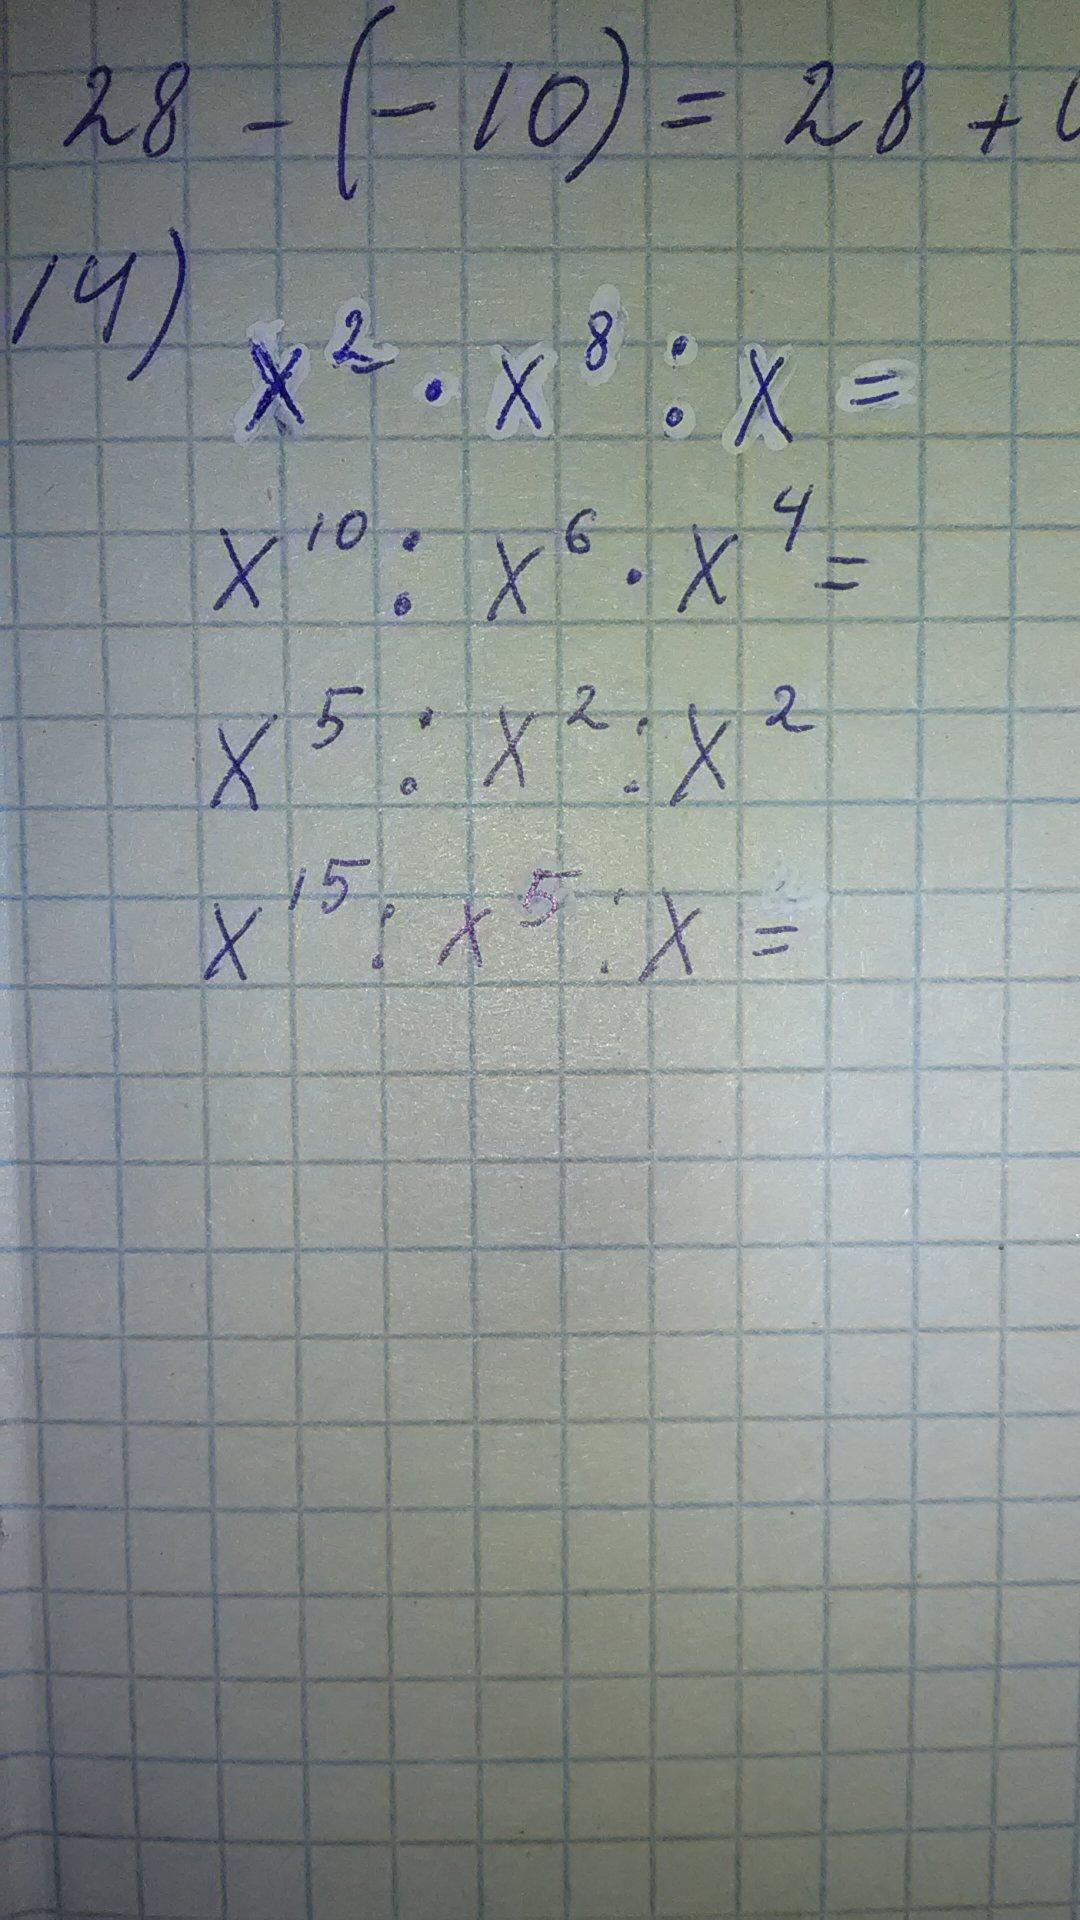 28 - (-10) = 28 +
14)
x² · x⁸ : x =
x¹⁰ : x⁶ · x⁴ =
x⁵ : x² : x²
x¹⁵ : x⁵ : x =